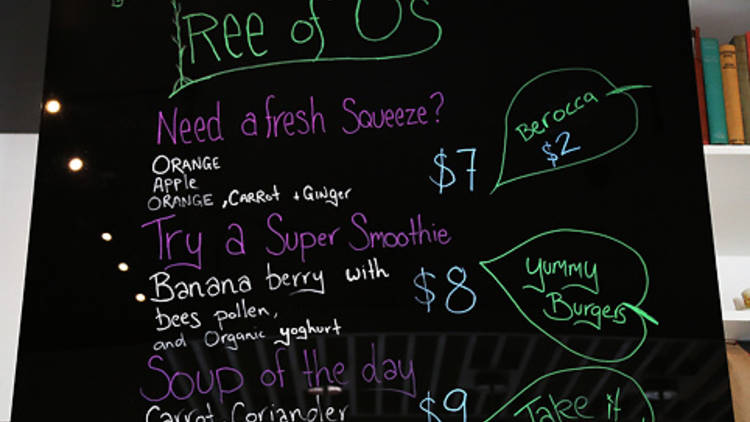 TREE of US
Need a fresh Squeeze?
ORANGE
Apple
ORANGE, CARRot + GiNger
$7
Berocca
$2
Try a Super Smoothie
Banana berry with
bees pollen,
and Organic yoghurt
$8
Yummy
Burgers
SOUP of the day
Carrot, Coriander
$9
Take it